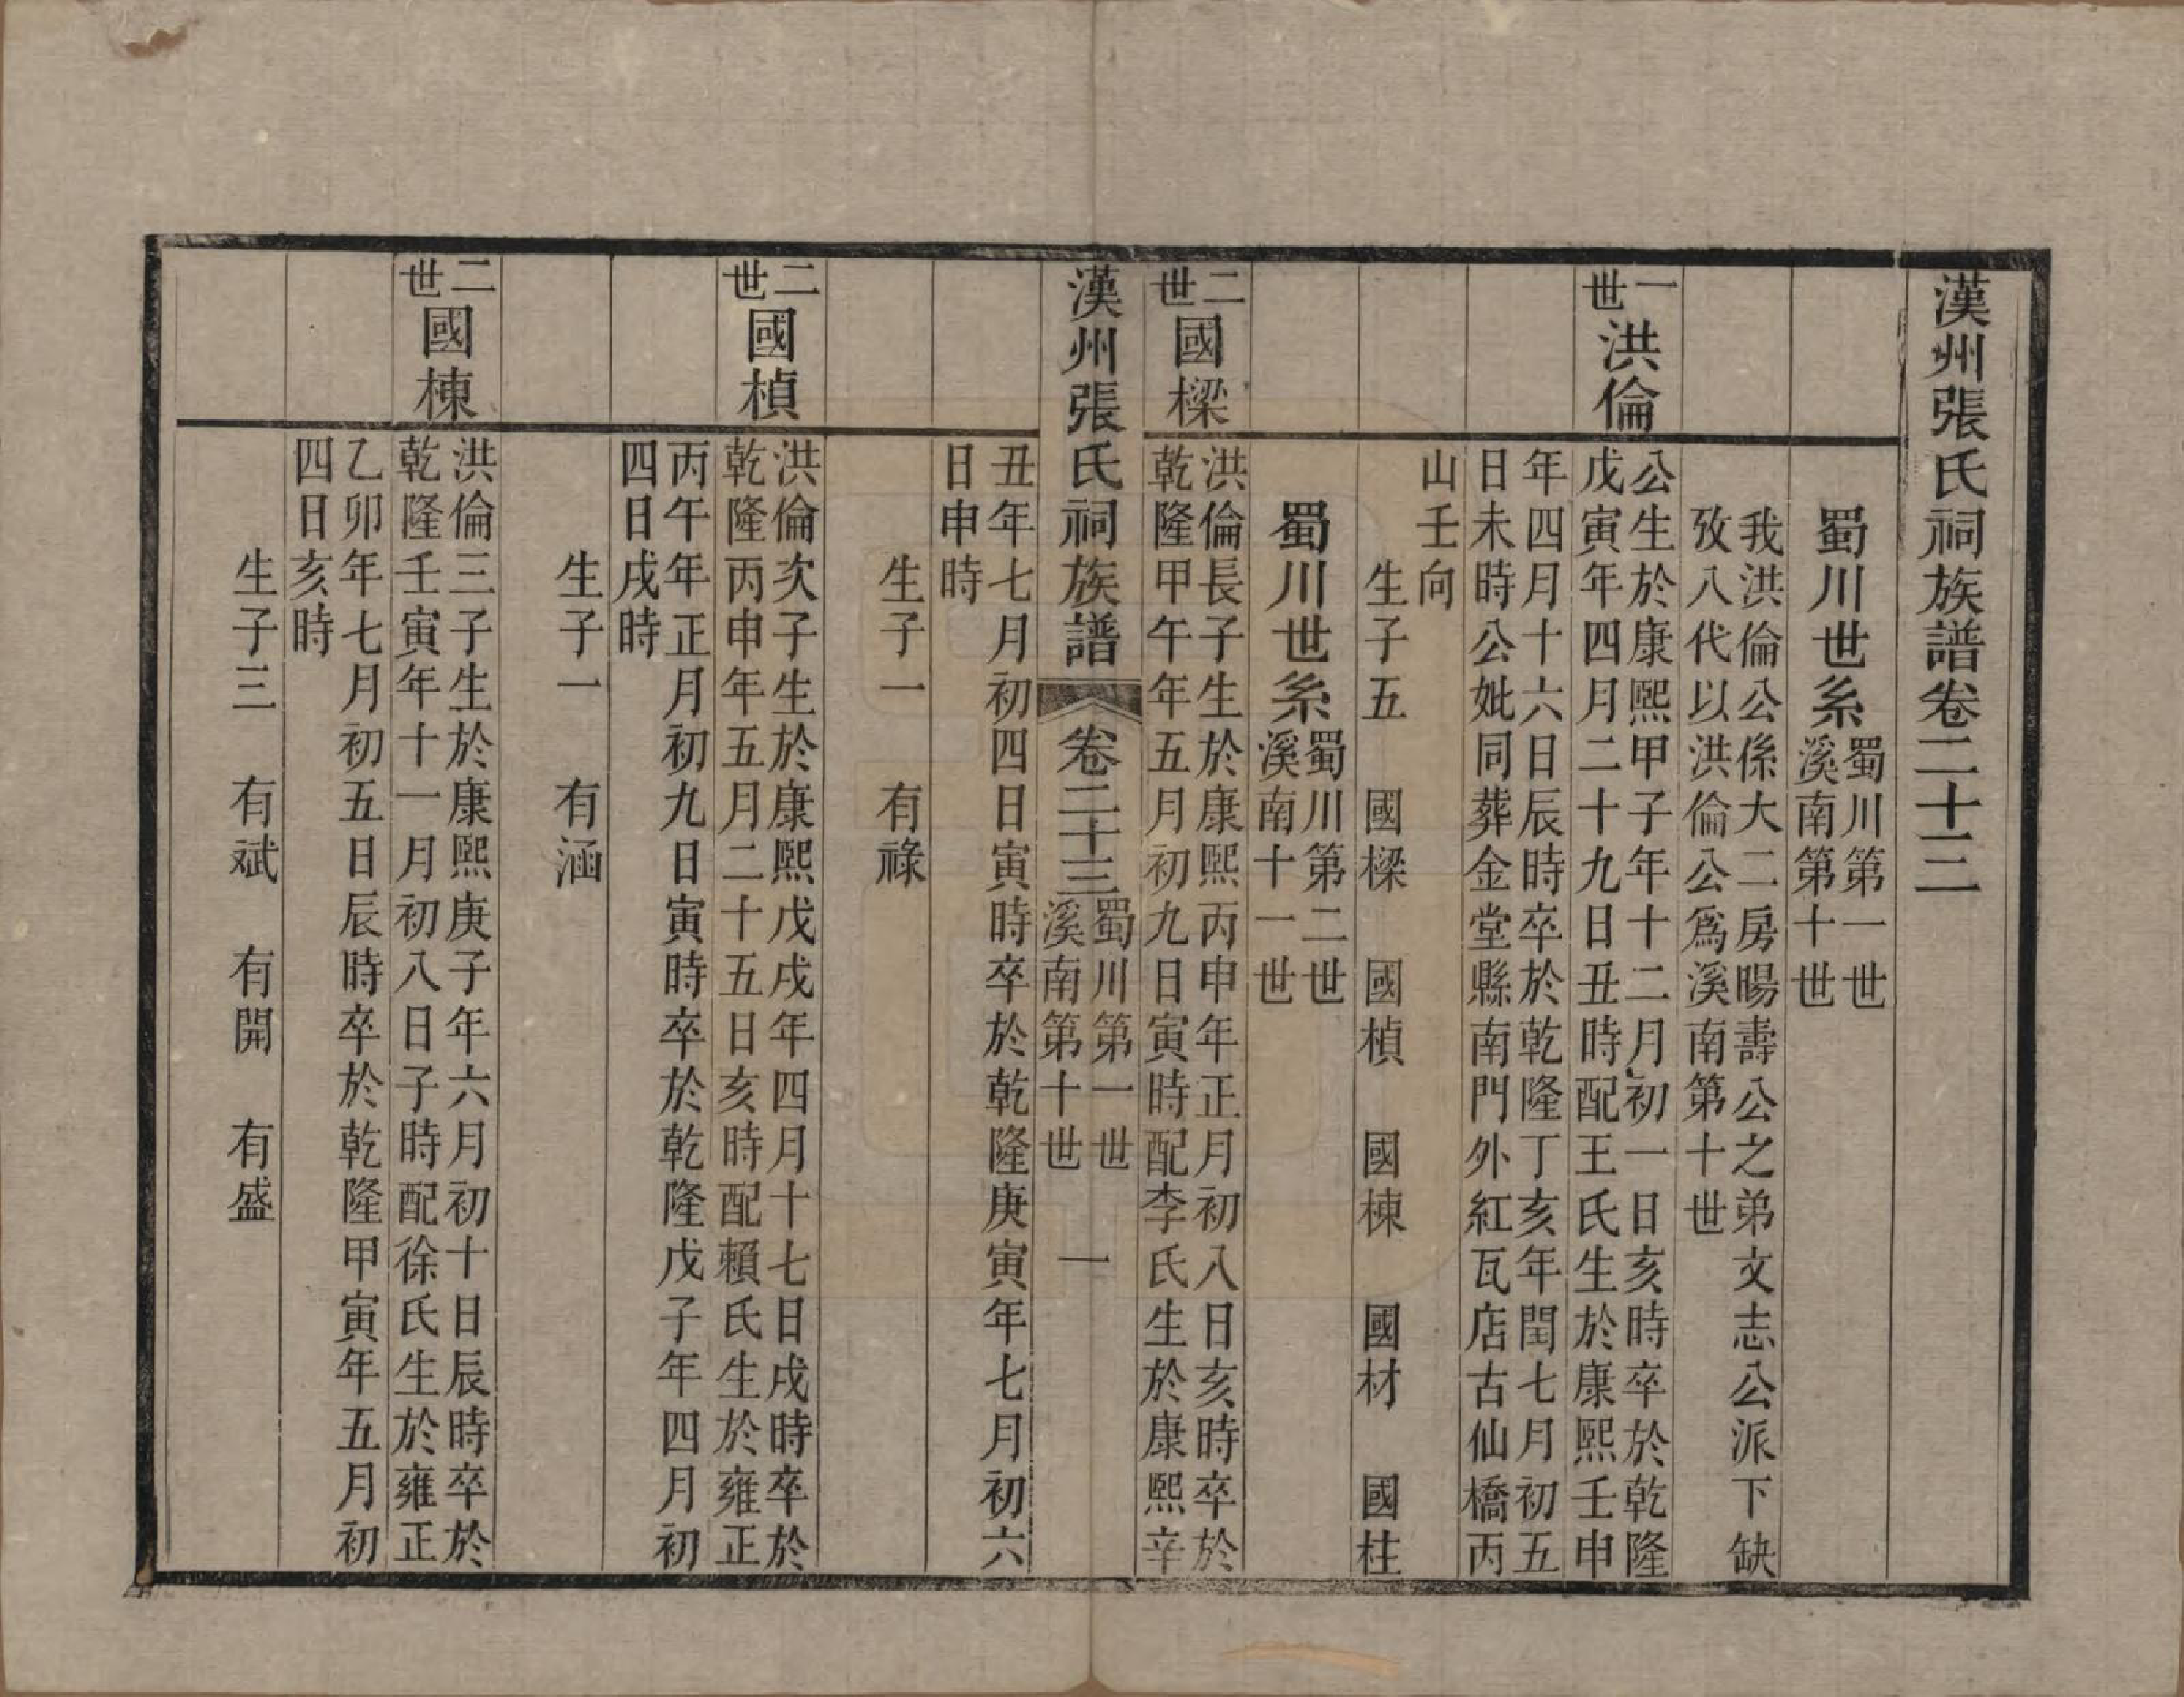 漢州張氏祠族譜卷二十三
蜀川世系
蜀川第一世
溪南第十世
我洪倫公係大二房暘壽公之弟文志公派下缺
攷八代以洪倫公爲溪南第十世
一世
洪倫
公生於康熙甲子年十二月初一日亥時卒於乾隆
戊寅年四月二十九日丑時配王氏生於康熙壬申
年四月十六日辰時卒於乾隆丁亥年閏七月初五
日未時公妣同葬金堂縣南門外紅瓦店古仙橋丙
山壬向
生子五 國樑 國楨 國棟 國材 國柱
蜀川世系
蜀川第二世
溪南十一世
二世
國樑
洪倫長子生於康熙丙申年正月初八日亥時卒於
乾隆甲午年五月初九日寅時配李氏生於康熙辛
漢州張氏祠族譜 卷二十三
蜀川第一世
溪南第十世
一
丑年七月初四日寅時卒於乾隆庚寅年七月初六
日申時
生子一 有祿
二世
國楨
洪倫次子生於康熙戊戌年四月十七日戌時卒於
乾隆丙申年五月二十五日亥時配賴氏生於雍正
丙午年正月初九日寅時卒於乾隆戊子年四月初
四日戌時
生子一 有涵
二世
國棟
洪倫三子生於康熙庚子年六月初十日辰時卒於
乾隆壬寅年十一月初八日子時配徐氏生於雍正
乙卯年七月初五日辰時卒於乾隆甲寅年五月初
四日亥時
生子三 有斌 有開 有盛